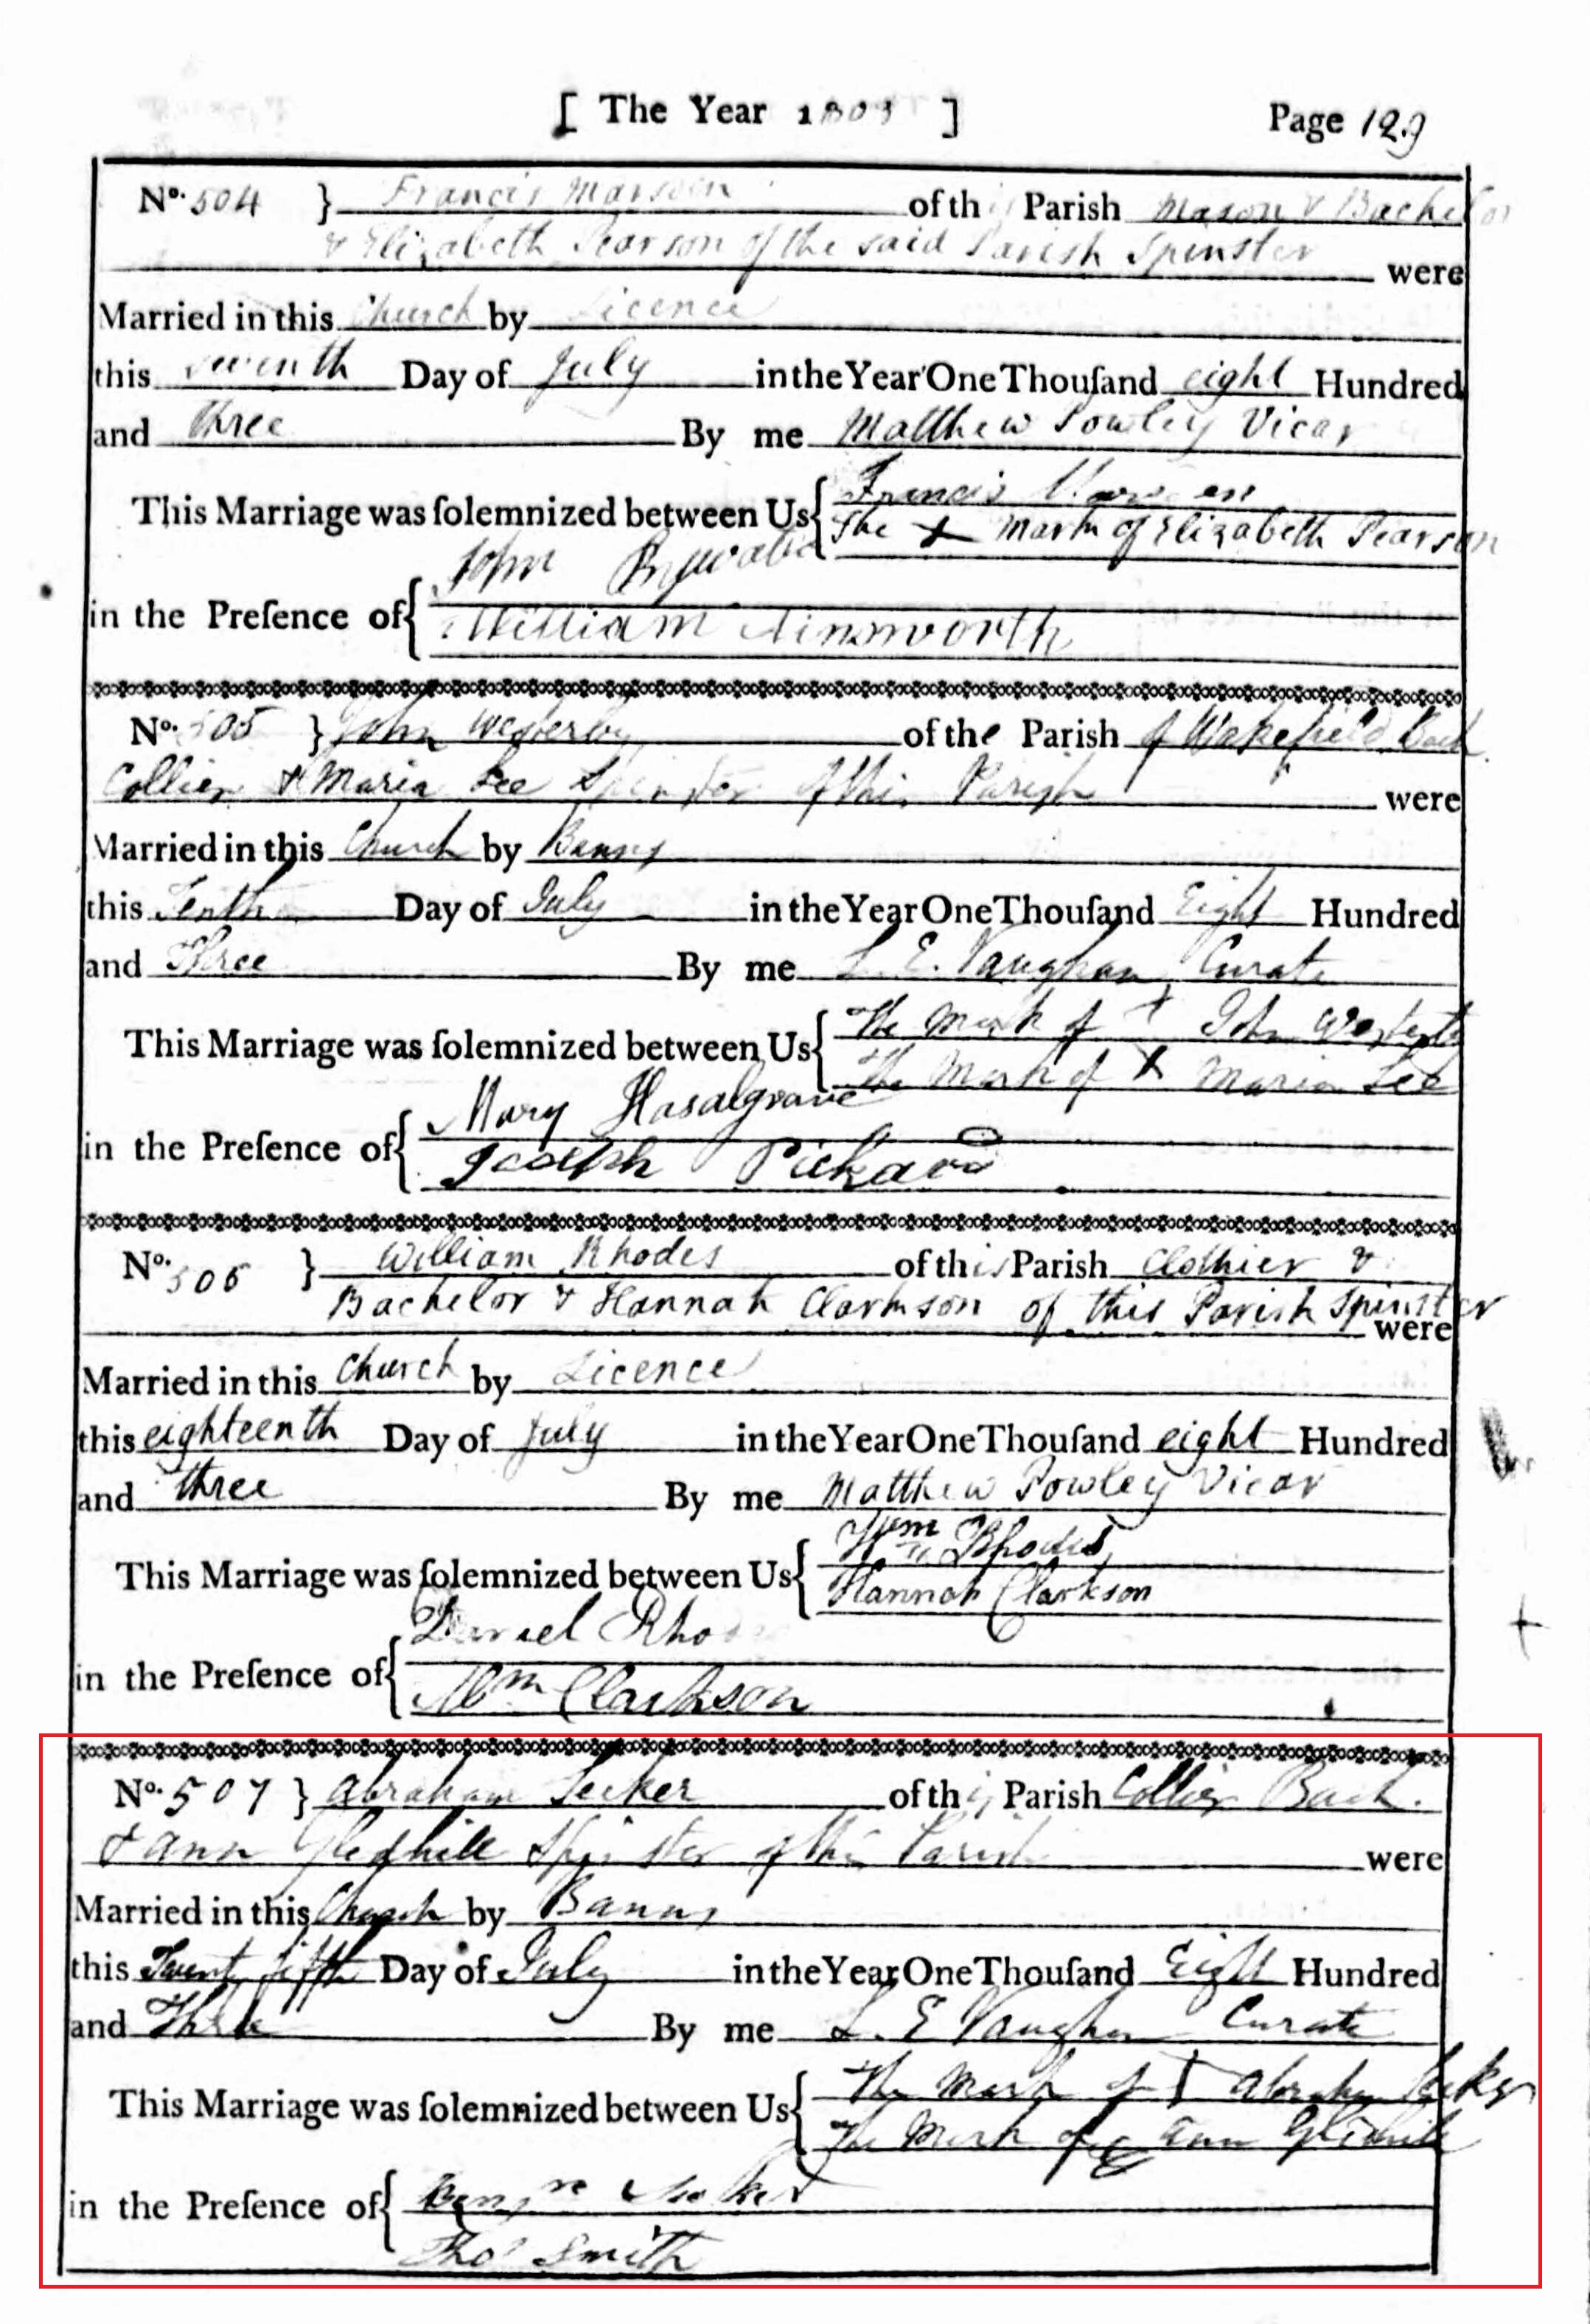 [ The Year 1803 ] Page 129
No. 504 } Francis Marsden of this Parish Mason & Bachelor
& Elizabeth Pearson of the said Parish Spinster were
Married in this Church by Licence
this seventh Day of July in the Year One Thouſand eight Hundred
and three By me Matthew Powley Vicar
This Marriage was ſolemnized between Us { Francis Marsden
The X mark of Elizabeth Pearson
in the Preſence of { John
William Ainsworth
No. 505 } John Westerby of the Parish of Wakefield Bach.
Collier & Maria Lee Spinster of this Parish were
Married in this Church by Banns
this Tenth Day of July in the Year One Thouſand Eight Hundred
and Three By me L. E. Vaughan, Curate
This Marriage was ſolemnized between Us { The Mark of + John Westerby
The Mark of X Maria Lee
in the Preſence of { Mary Hasalgrave
Joseph Pickard
No. 506 } William Rhodes of this Parish Clothier &
Bachelor & Hannah Clarkson of this Parish Spinster
were
Married in this Church by Licence
this eighteenth Day of July in the Year One Thouſand eight Hundred
and three By me Matthew Powley Vicar
This Marriage was ſolemnized between Us { Wm Rhodes
Hannah Clarkson
in the Preſence of { Daniel Rhodes
Wm Clarkson
No. 507 } Abraham Secker of this Parish Collier Bach.
& Ann Gledhill Spinster of this Parish were
Married in this Church by Banns
this Twenty fifth Day of July in the Year One Thouſand Eight Hundred
and Three By me L. E Vaughan Curate
This Marriage was ſolemnized between Us { The Mark of + Abraham Secker
The Mark of Ann Gledhill
in the Preſence of { Benjn Secker
Thos Smith